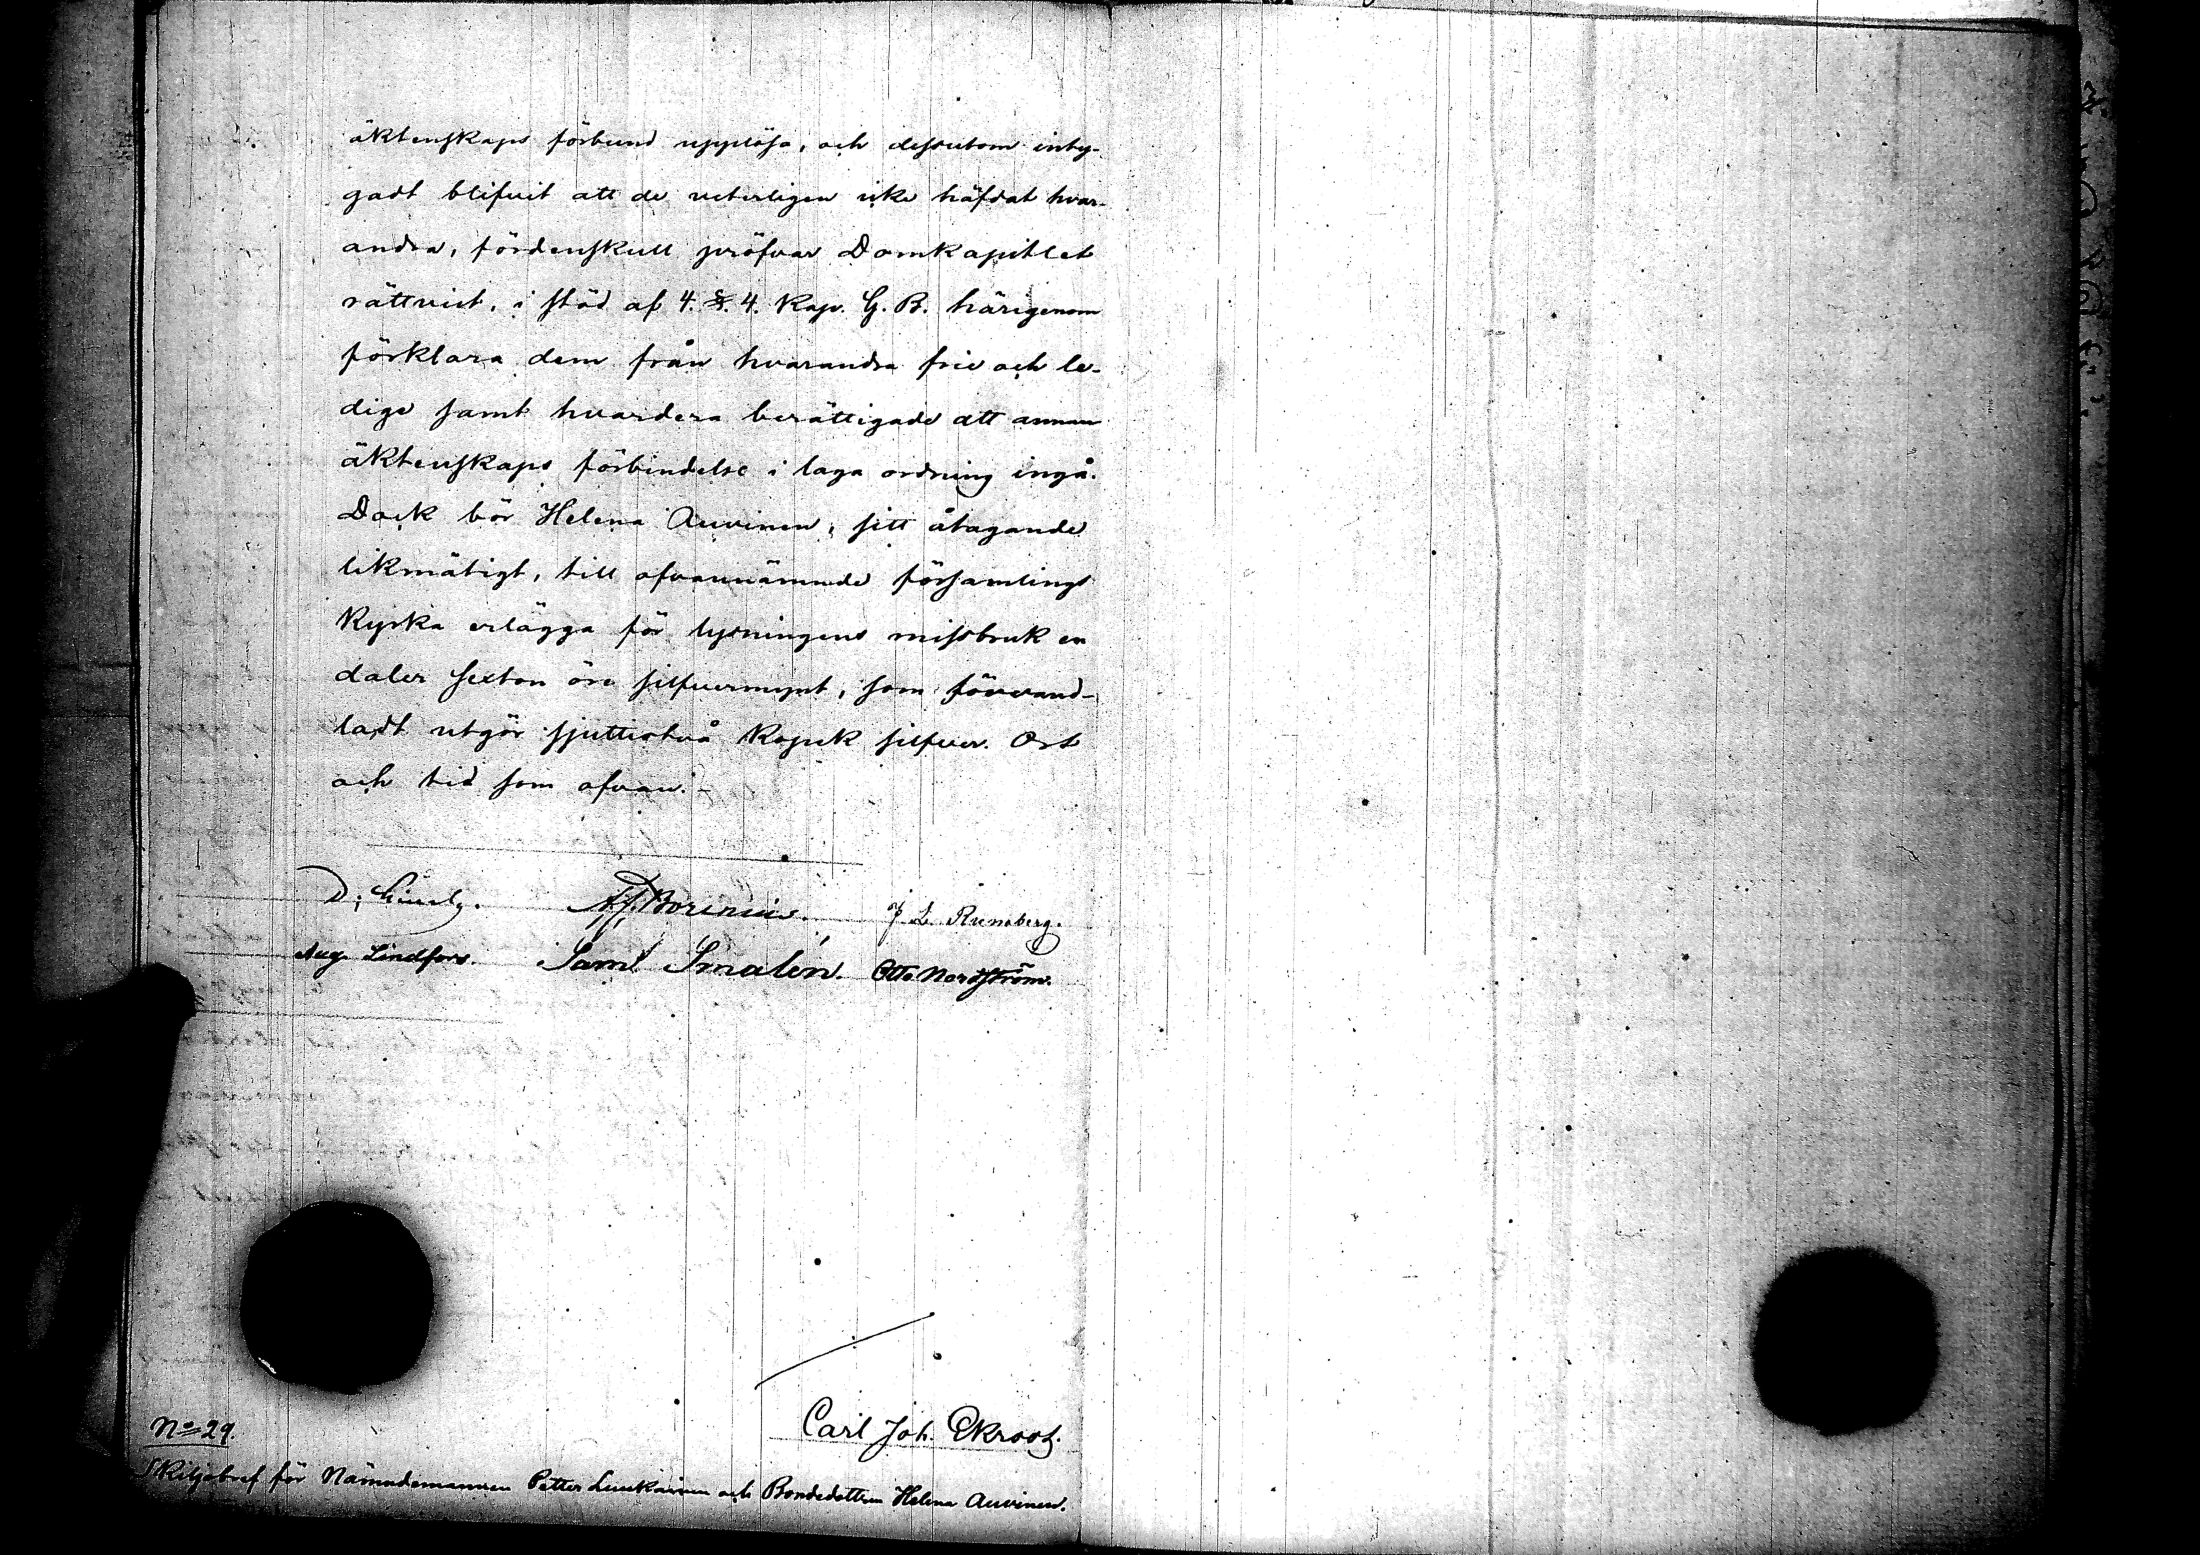 äktenskaps förbund upplösa, och dessutom inty-
gadt blifvit att de veterligen icke häfdat hvar-
andra, fördenskull pröfvar Domkapitlet
rättvist, i stöd af 4. §. 4. Kap. G. B. härigenom
förklara dem från hvarandra frie och le-
dige samt hvardera berättigade att annan
äktenskaps förbindelse i laga ordning ingå.
Dock bör Helena Auvinen, sitt åtagande
likmätigt, till ofvannämnde församlings
Kyrka erlägga för lysningens missbruk en
daler sexton öre silfvermynt, som förvand-
ladt utgör sjuttiotvå Kopek silfver. Ort
och tid som ofvan.
Borenius. J. L. Runeberg.
Aug. Lindfors. Saml Smalén. Otto Nordström.
Carl Joh. Ekroos.
No 29.
Skiljobref för Nämndemannen Petter och Bondedottren Helena Auvinen.